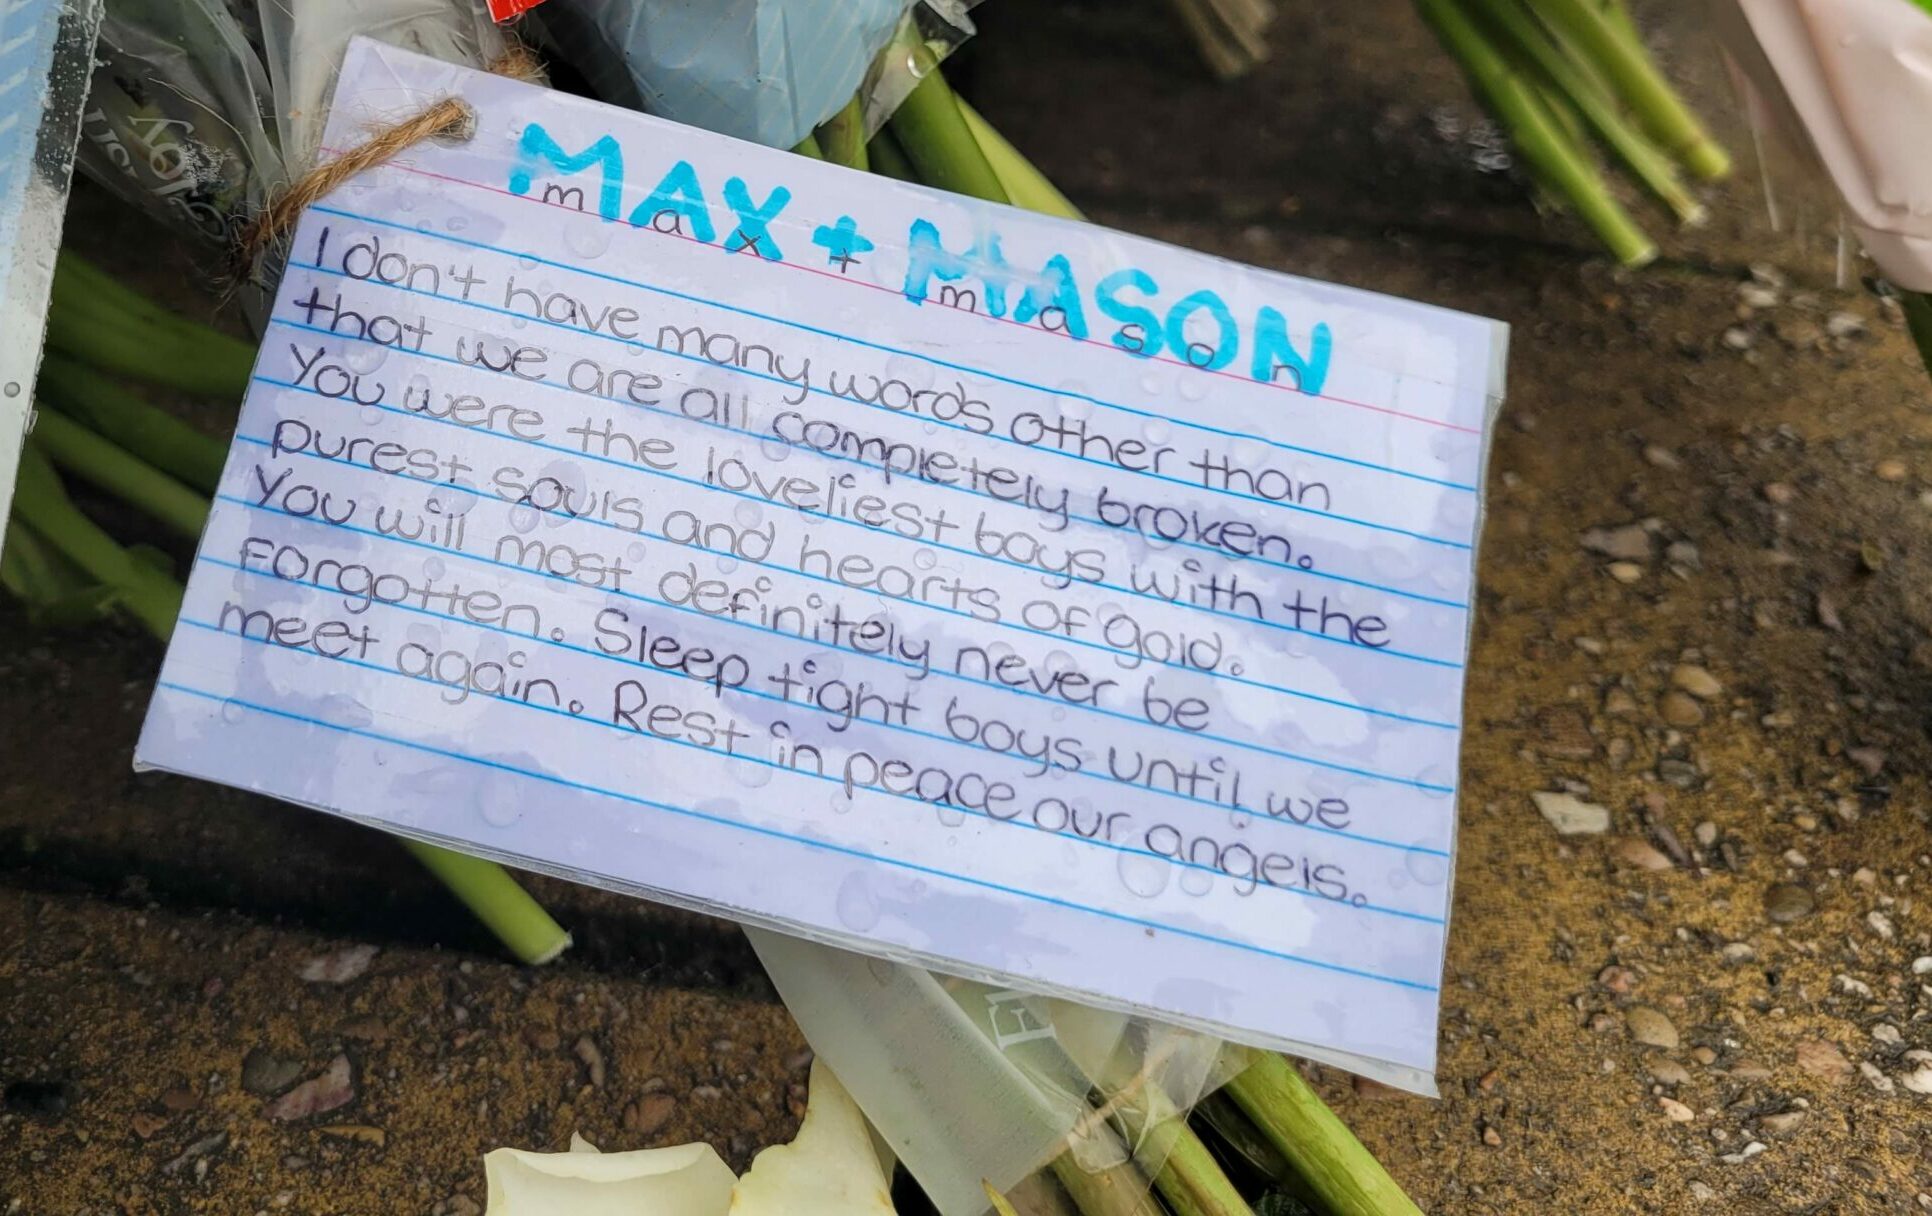 MAX + MASON
max + mason
I don't have many words other than
that we are all completely broken.
You were the loveliest boys with the
purest souls and hearts of gold.
You will most definitely never be
forgotten. Sleep tight boys until we
meet again. Rest in peace our angels.